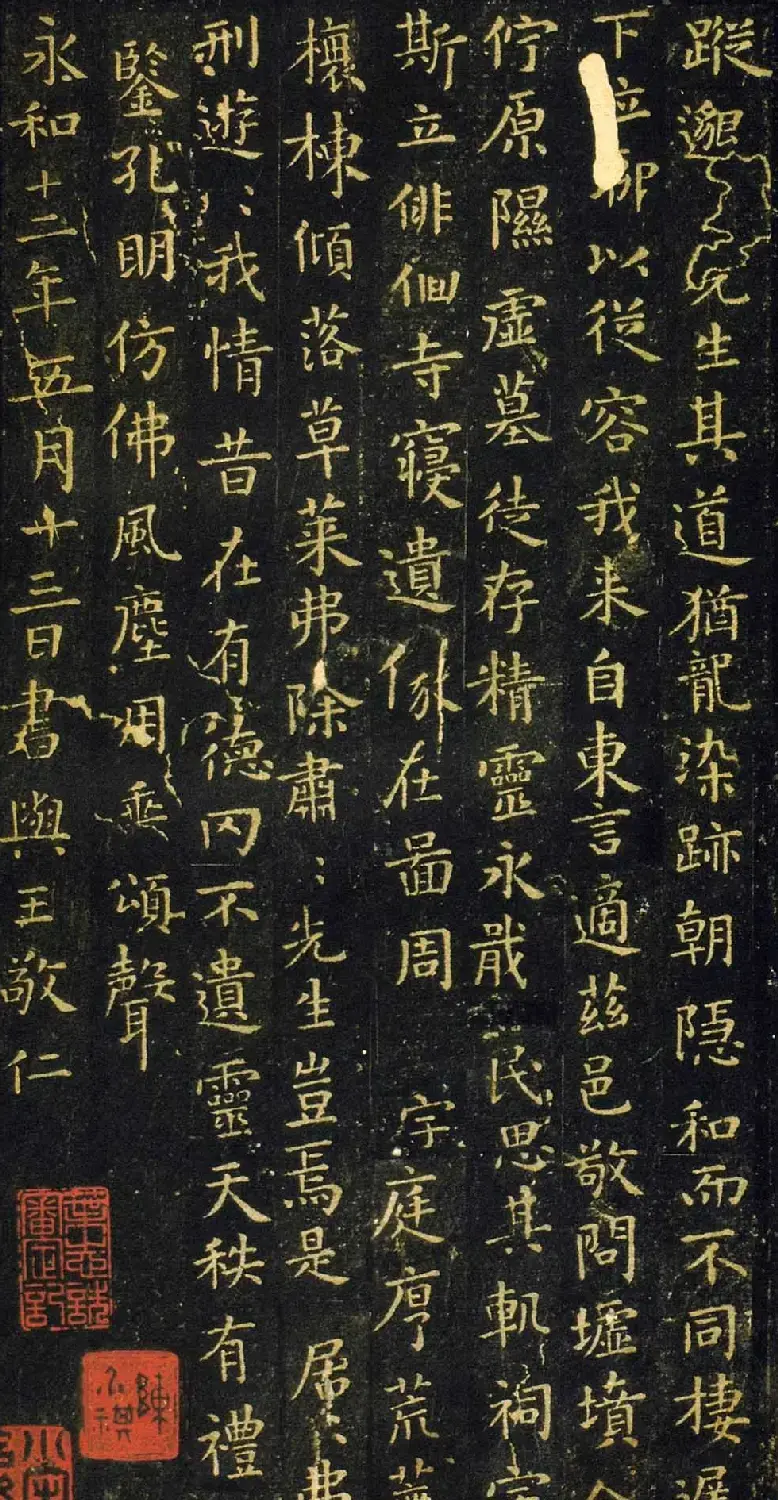 蹤邈〻先生其道猶龍染跡朝隱和而不同棲遲
下位聊以從容我来自東言適茲邑敬問墟墳企
佇原隰虛墓徒存精靈永戢民思其軌祠宇
斯立俳佪寺寢遺像在啚周 宇庭序荒蕪
榱棟傾落草莱弗除肅〻先生豈焉是居〻弗
刑遊〻我情昔在有德罔不遺靈天秩有禮
鑒孔明仿佛風塵用垂頌聲
永和十二年五月十三日書與王敬仁